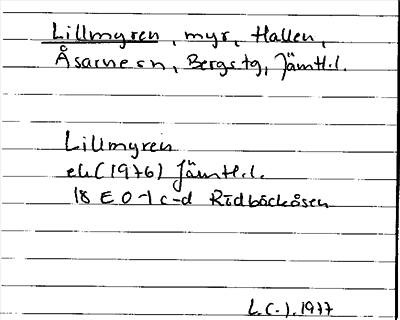 Lillmyren, myr, Hallen,
Åsarne sn, Bergs tg, Jämtl.l.
Lillmyren
ek (1976) Jämtl.l.
18 E 0-1 c-d Rödbäckåsen
L.(.). 1977